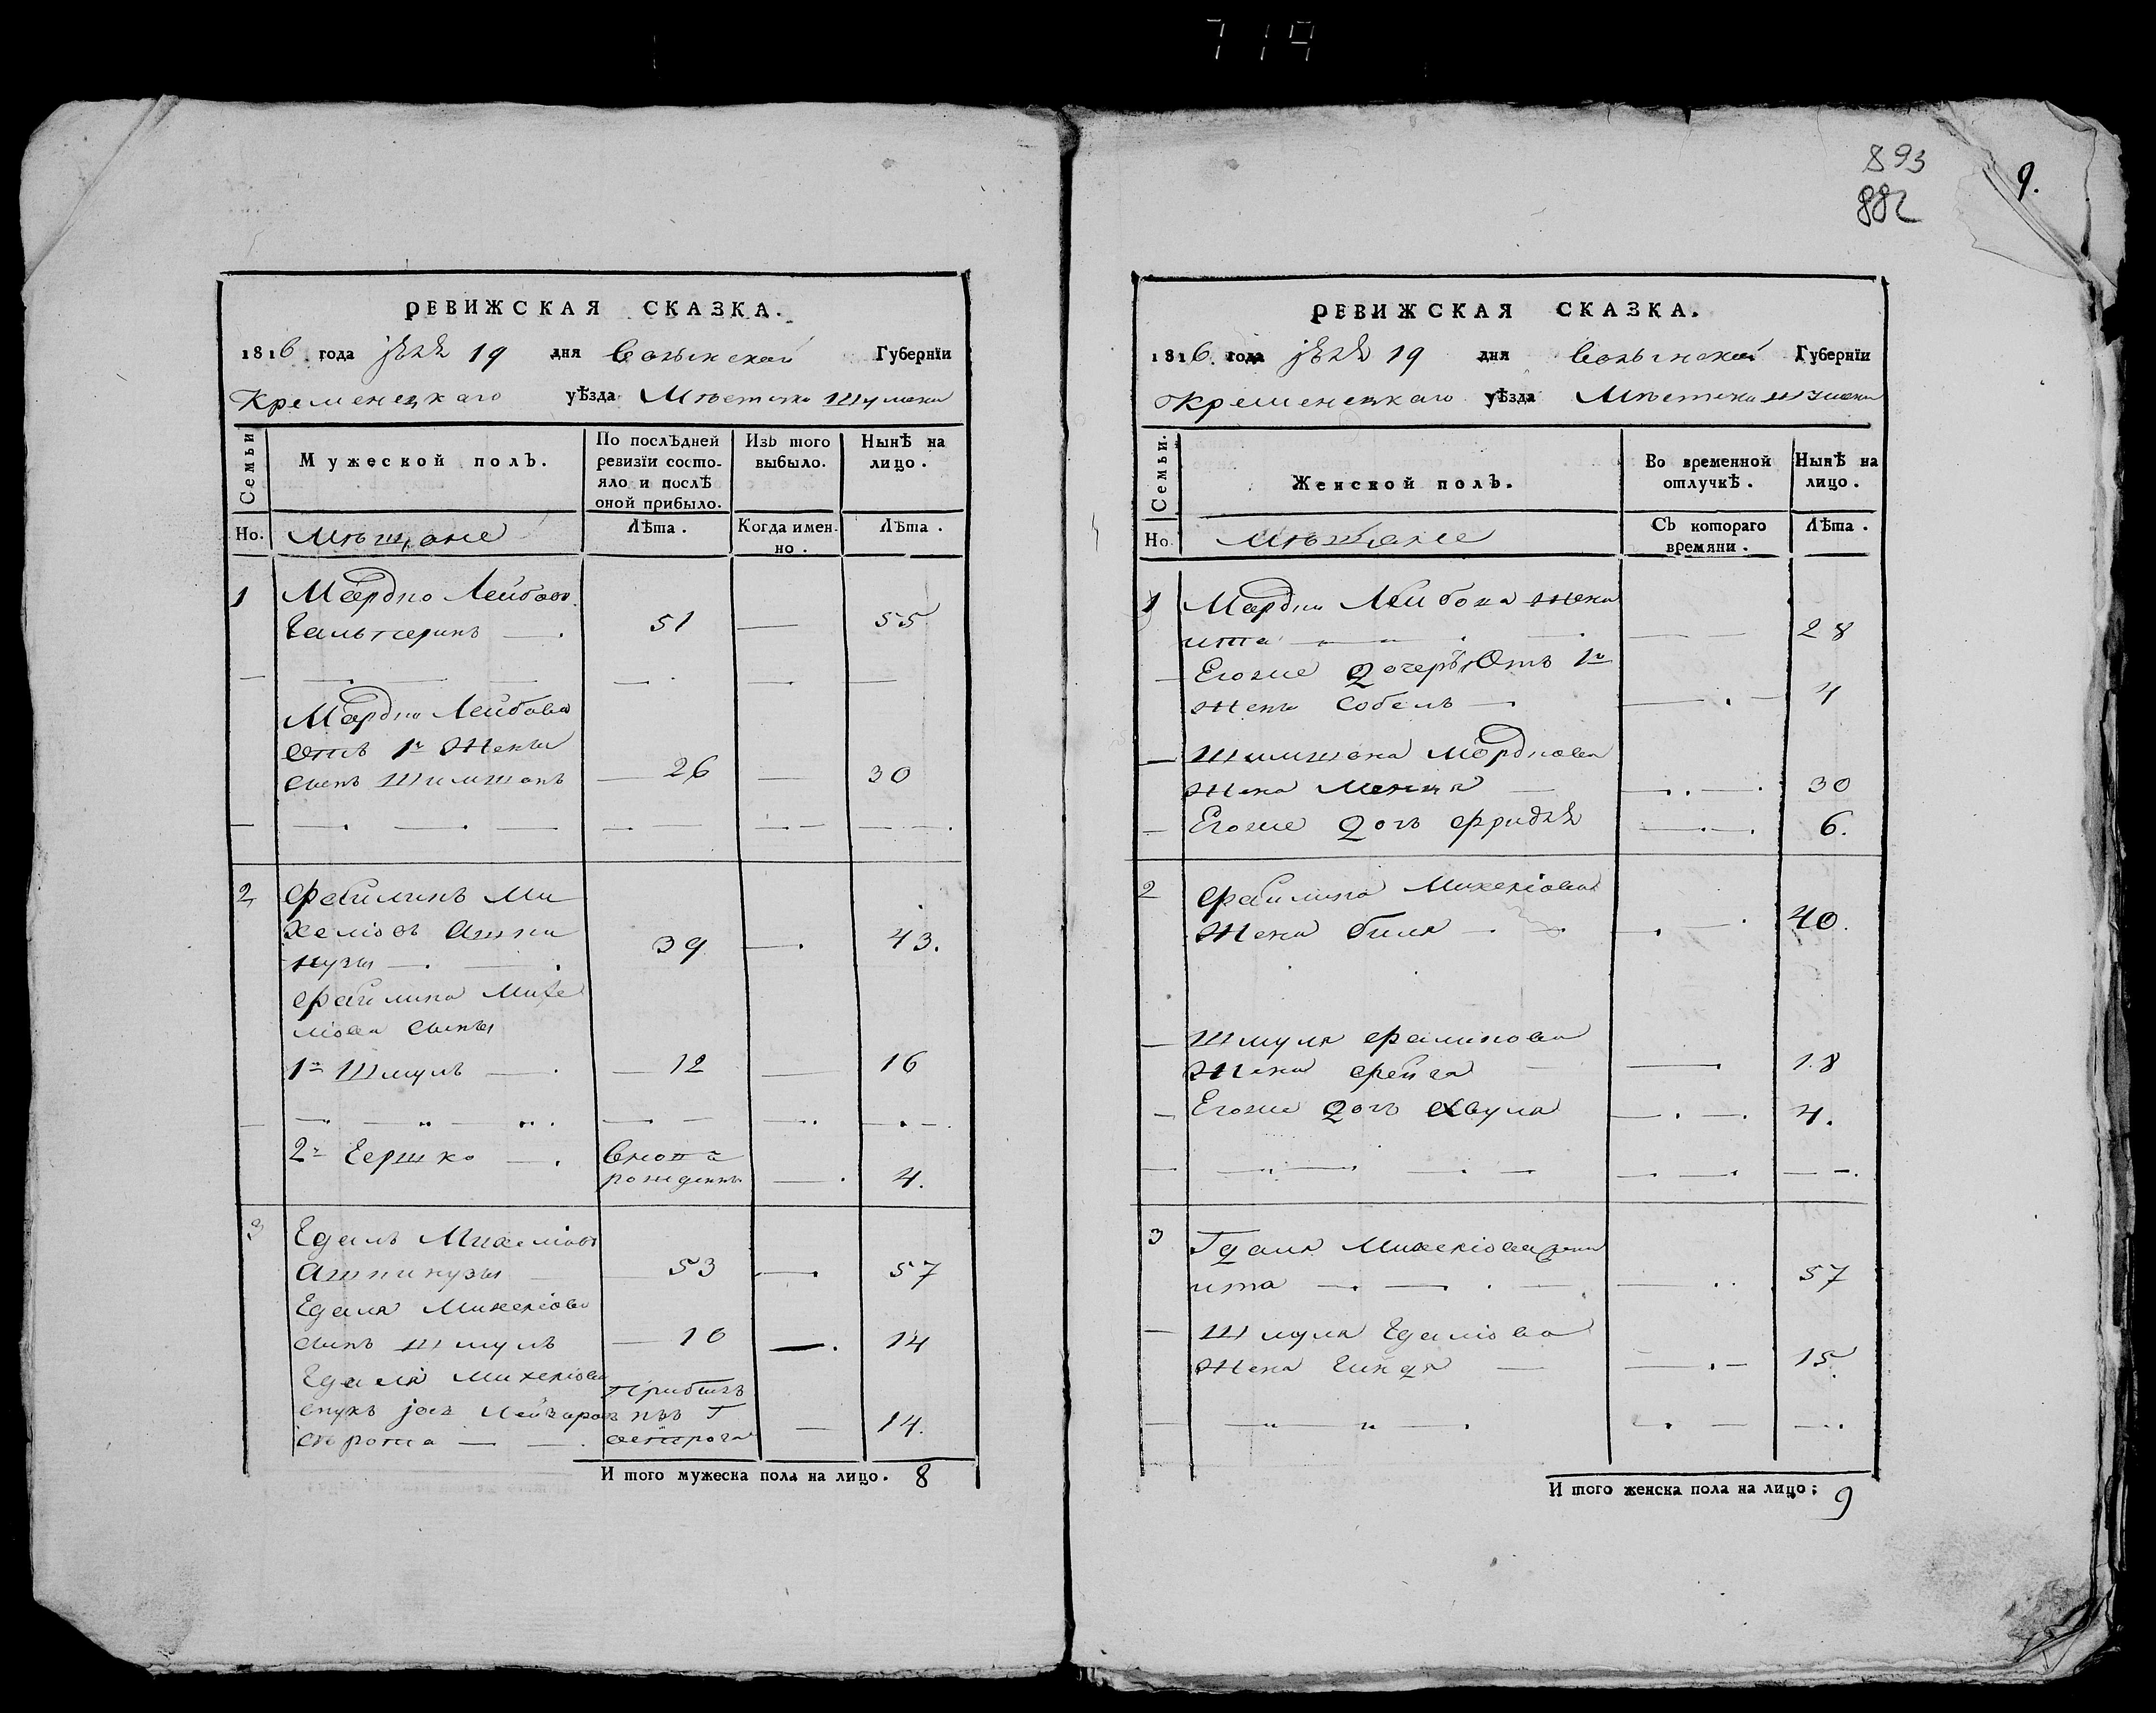 719
РЕВИЖСКАЯ СКАЗКА.
1816 года 19 дня Волынской Губернїи
Кременецкаго уѣзда Мѣстечка Шумска
Семьи
Мужеской полъ.
По послѣдней ревизїи состо-
яло и послѣ
оной прибыло.
Изъ того
выбыло.
Нынѣ на
лицо.
Но.
Мѣщане
Лѣта.
Когда имен-
но.
Лѣта.
1 Мордко Лейбовъ
51 — 55
Мордка Лейбова
отъ 1й жены
сынъ Шимшонъ — 26 — 30
2 Файликъ Ми
хелiовъ
39 — 43.
Файлика Михе
лiова сыны
1й Шмуль — 12 — 16
2й Гершко — 4.
рожденъ
3 Гдаль Михелiовъ
53 — 57
Гдаля Михелiова
сынъ Шмуль — 10 — 14
Гдаля Михелiова
внукъ Лейзоровъ
сирота — 14.
Прибылъ
изъ Г
Острога
И того мужеска пола на лицо. 8
893
882
9.
РЕВИЖСКАЯ СКАЗКА.
1816 года 19 дня Волынской Губернїи
Кременецкаго уѣзда Мѣстечка Шумска
Семьи.
Женской полъ.
Во временной
отлучкѣ.
Нынѣ на
лицо.
Но
Мѣщане
Съ котораго
времяни.
Лѣта.
1 Мордка Лейбова жена
ита — 28
Егоже дочерь отъ 1й
жены Собель — 4
Шимшона Мордкова
жена — 30
Егоже дочь Фридля 6.
2 Файлика Михелiова
жена биля — 40.
Шмуля Файликова
жена Фейга — 18
Егоже дочь Хвула — 4.
3 Гдаля Михелiова жена
ита — 57
Шмуля Гдалiова
жена Гиндя — 15.
И того женска пола на лицо: 9